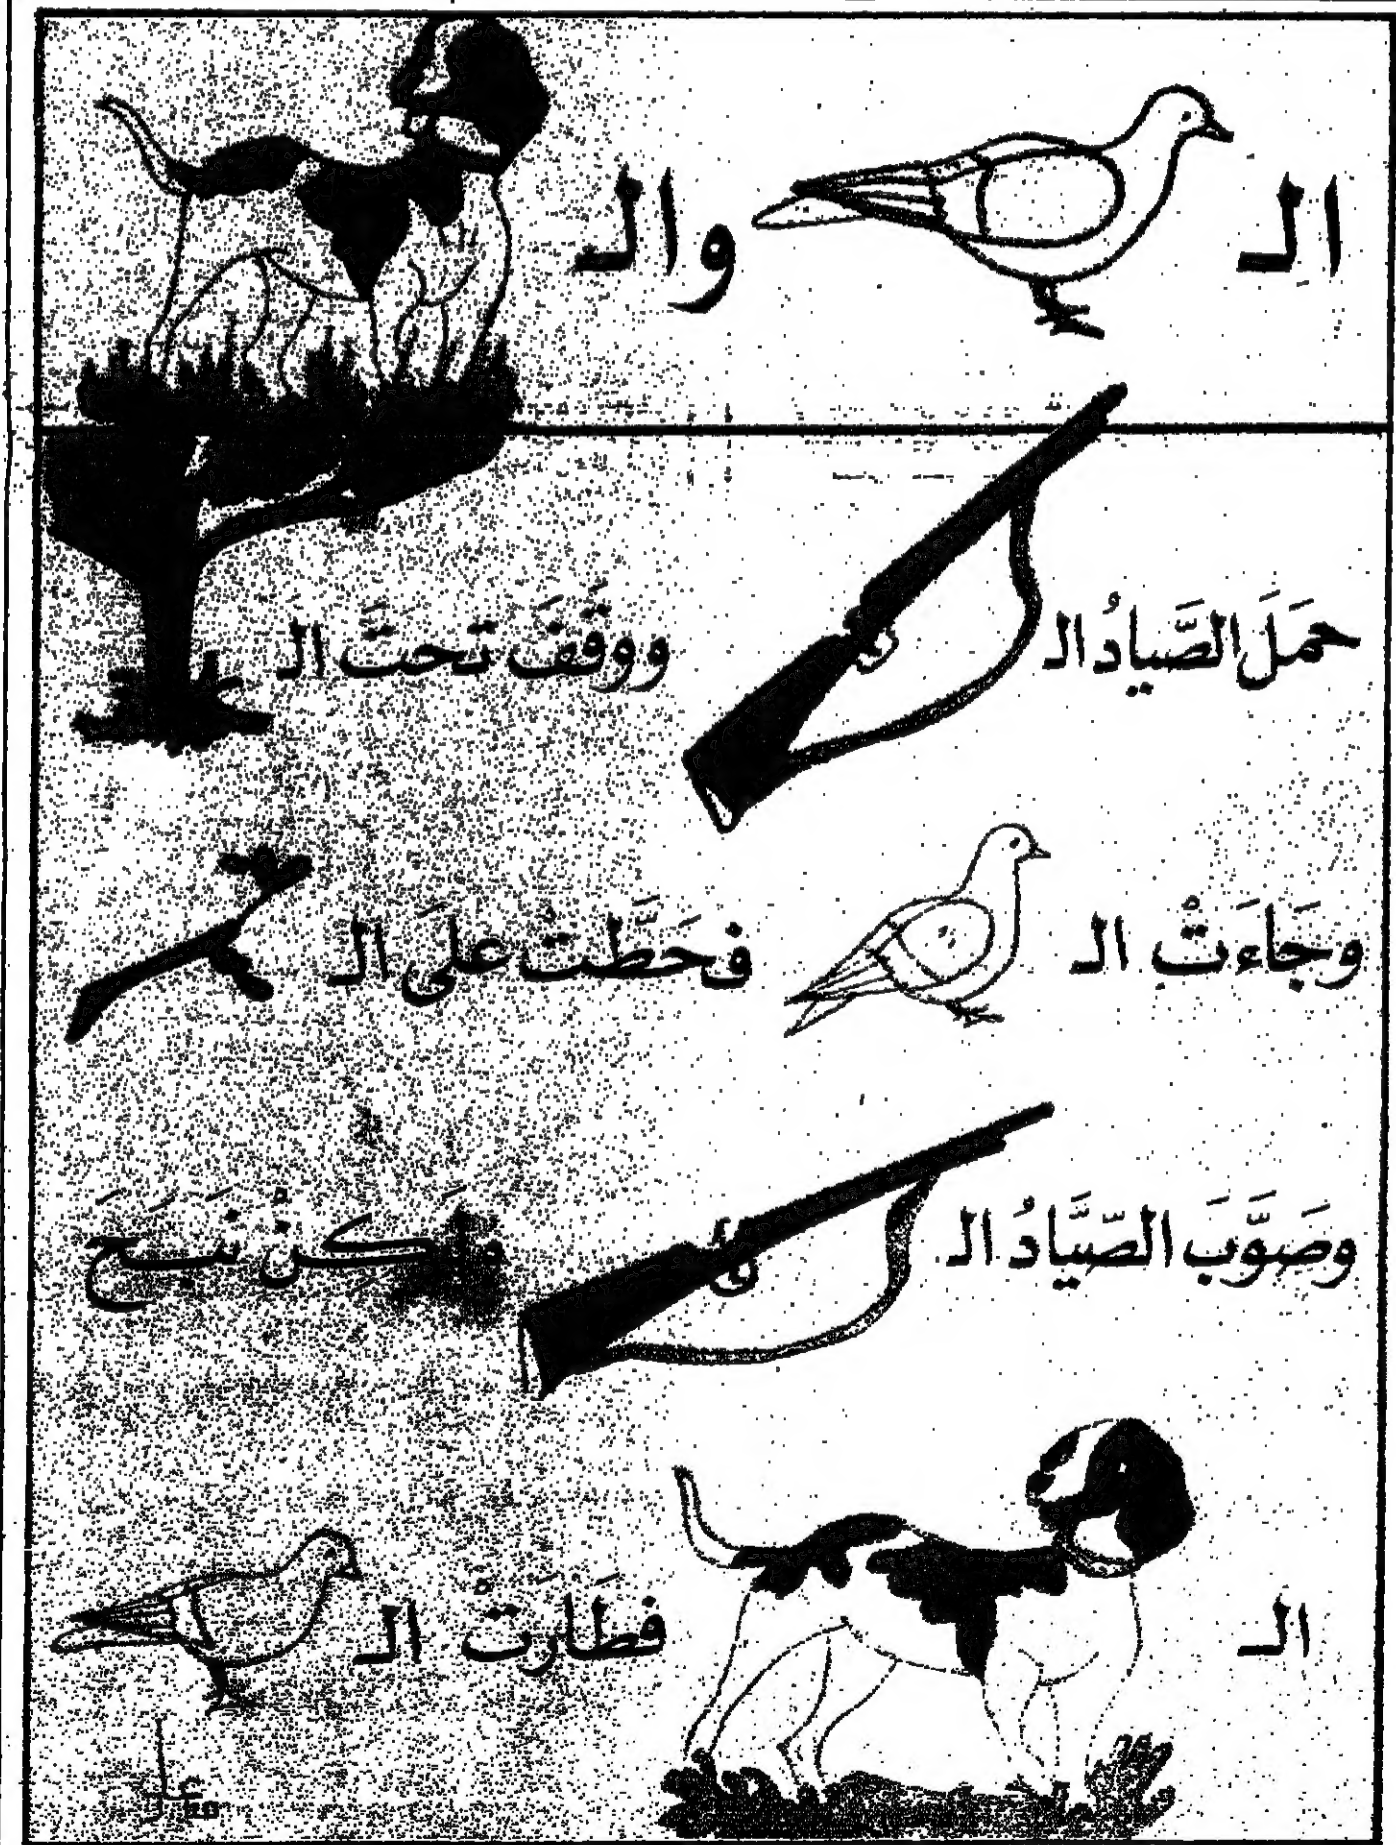 الـ والـ
حمَلَ الصَّيادُ الـ ووقَفَ تحتَ الـ
وجَاءَتْ الـ فحَطَّتْ علَى الـ
وصَوَّبَ الصّيَّادُ الـ ولَكنْ نَبَحَ
الـ فطَارَتْ الـ